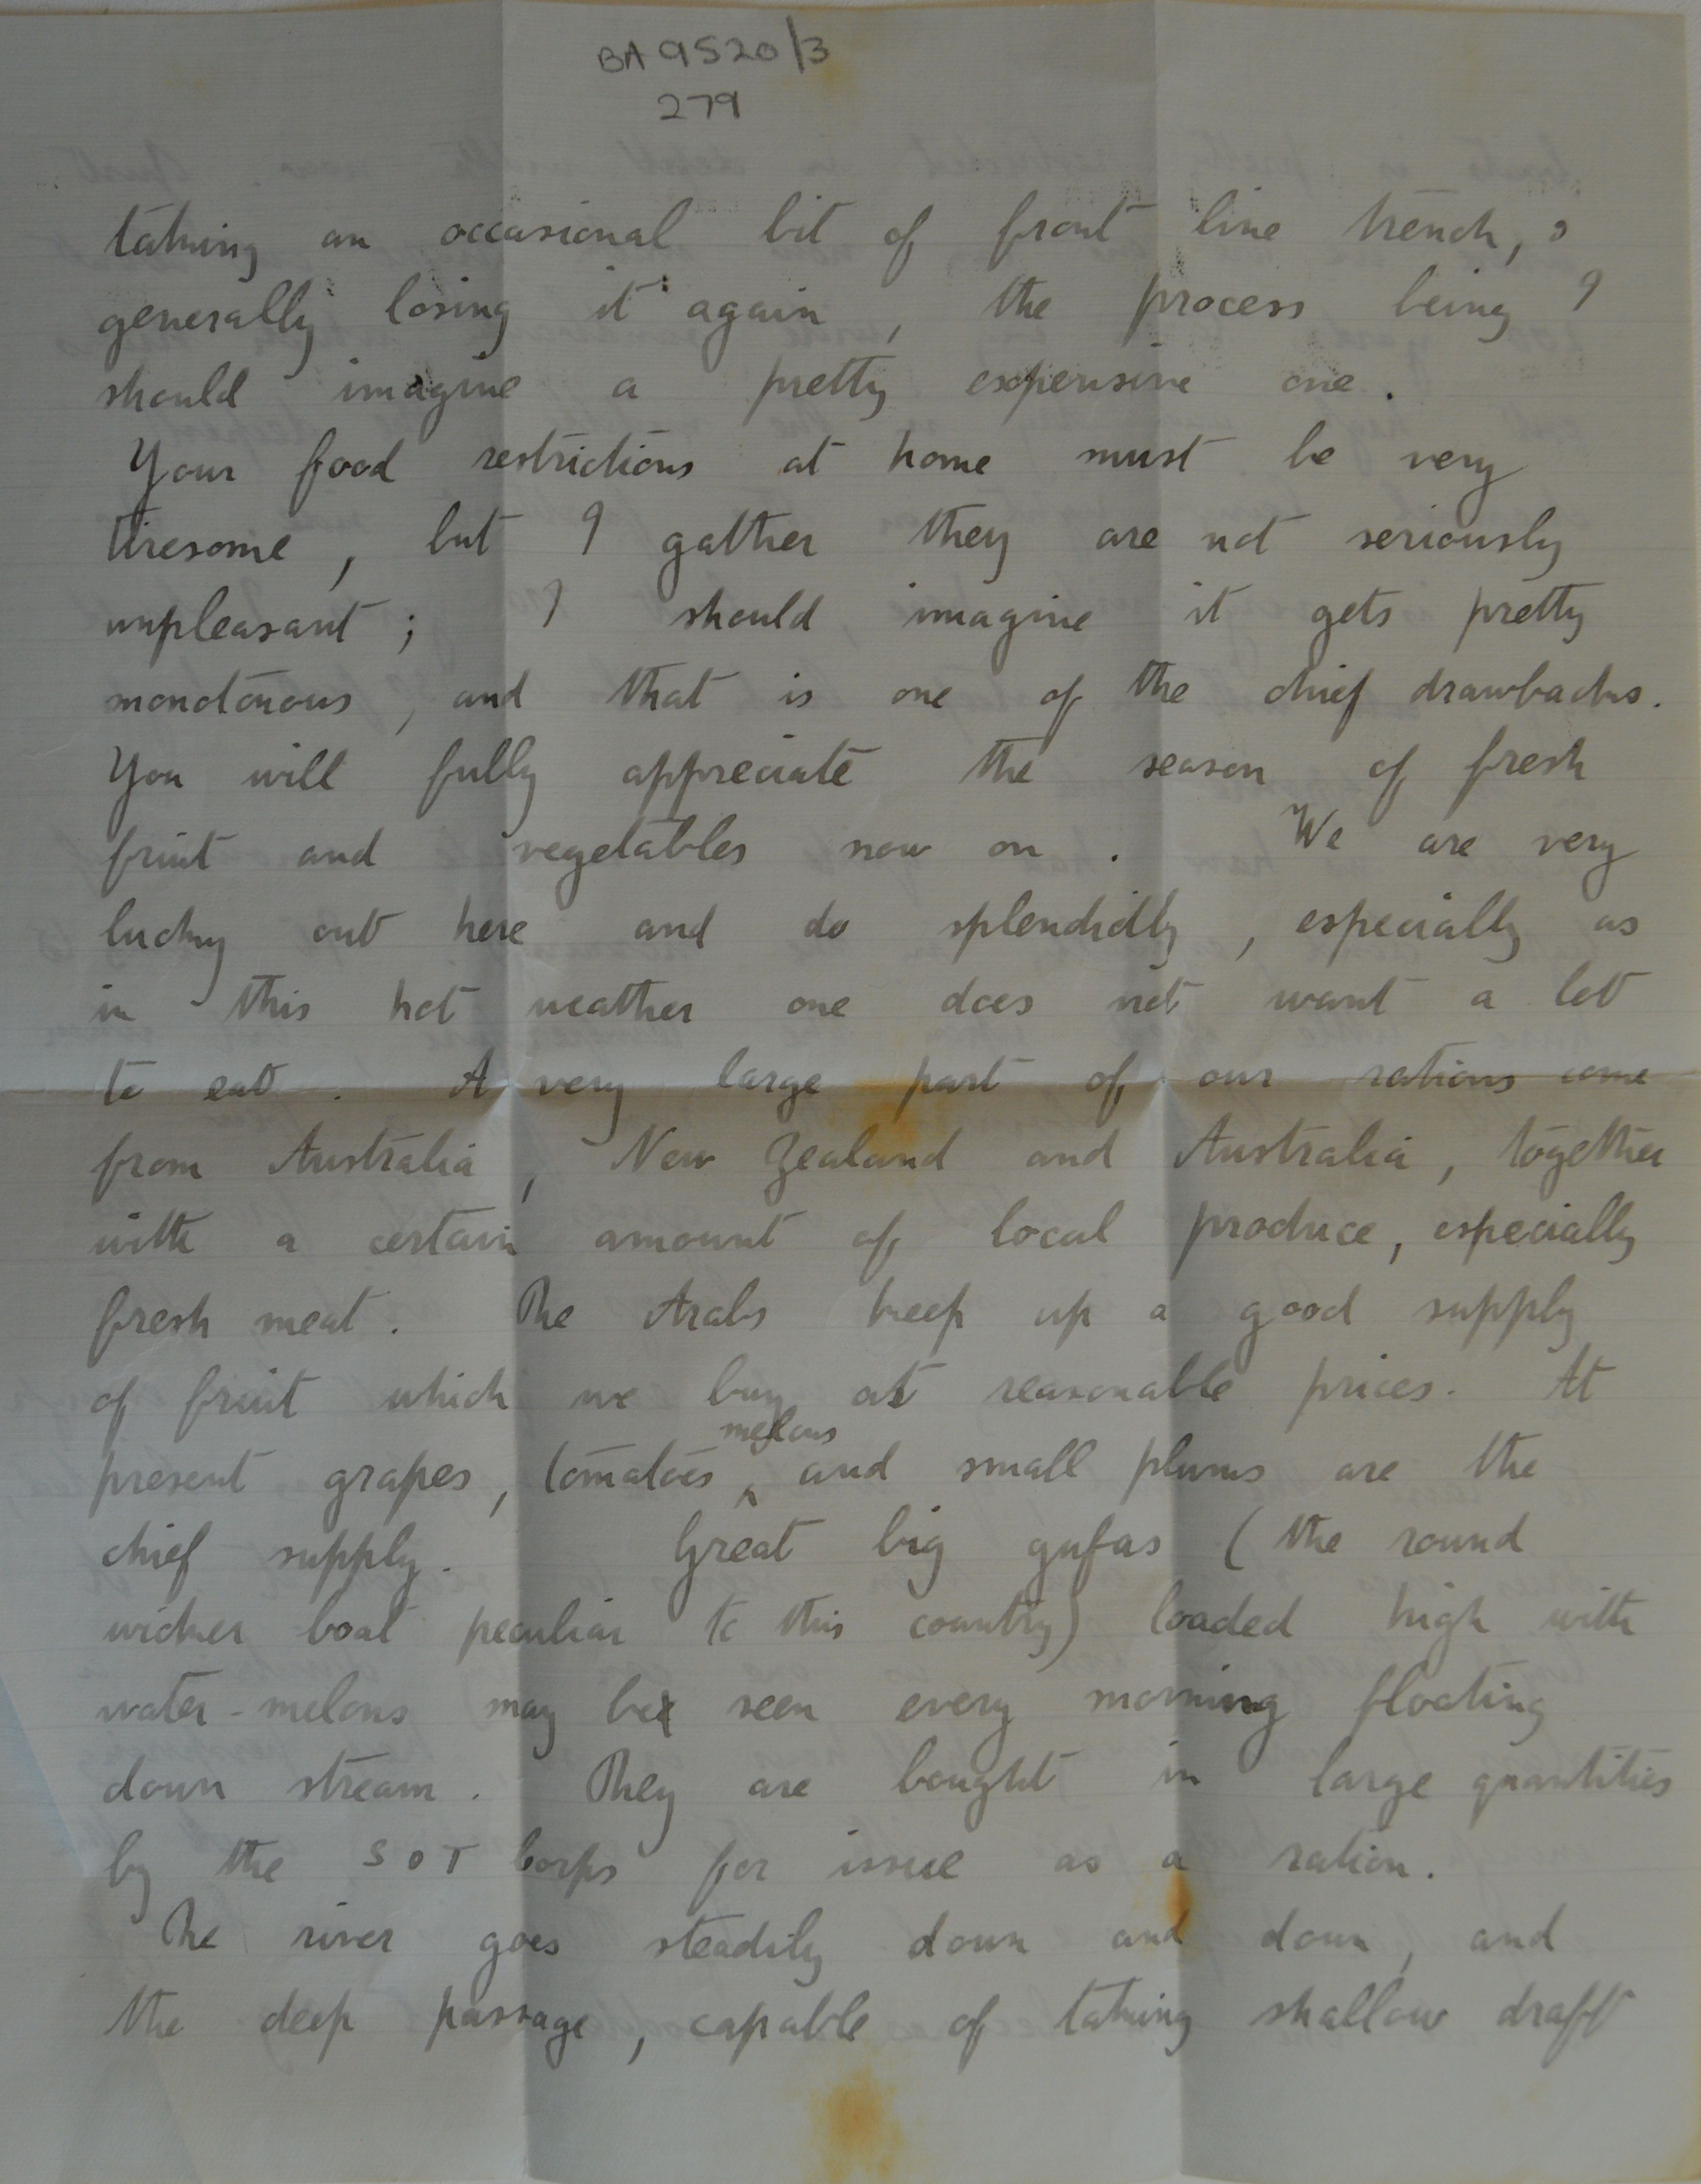 BA 9520/3
279
taking an occasional bit of front line trench, &
generally losing it again, the process being I
should imagine a pretty expensive one.
Your food restrictions at home must be very
tiresome, but I gather they are not seriously
unpleasant; I should imagine it gets pretty
monotonous, and that is one of the chief drawbacks.
You will fully appreciate the season of fresh
fruit and vegetables now on. We are very
lucky out here and do splendidly, especially as
in this hot weather one does not want a lot
to eat. A very large part of our rations come
from Australia, New Zealand and Australia, together
with a certain amount of local produce, especially
fresh meat. The Arabs keep up a good supply
of fruit which we buy at reasonable prices. At
melons
present grapes, tomatoes ^ and small plums are the
chief supply. Great big gufas (the round
wicker boat peculiar to this country) loaded high with
water-melons may be seen every morning floating
down stream. They are bought in large quantities
by the S & T Corps for issue as a ration.
The river goes steadily down and down, and
the deep passage, capable of taking shallow draft